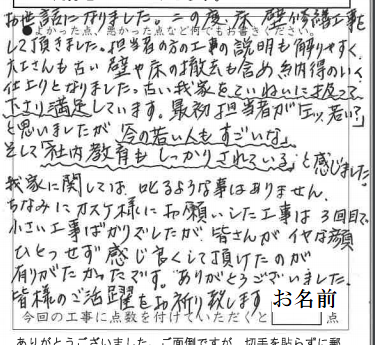 お世話になりました。この度、床、壁修繕工事を
●よかった点、悪かった点など何でもお書きください。
して頂きました。担当者の方の工事の説明も解りやすく、
大工さんも古い壁や床の撤去も含め、納得のいく
仕上りとなりました。古い我家をていねいに扱って
下さり満足しています。最初、担当者が「エッ、若い?」
と思いましたが「今の若い人もすごいな」
そして「社内教育もしっかりされている」と感じました。
我家に関しては、叱るような事はありません。
ちなみにカスケ様にお願いした工事は3回目で
小さい工事ばかりでしたが、皆さんがイヤな顔
ひとつせず感じ良くして頂けたのが
有りがたかったです。ありがとうございました。
皆様のご活躍をお祈り致します
お名前
今回の工事に点数を付けていただくと 点
ありがとうございました。ご面倒ですが、切手を貼らずに郵